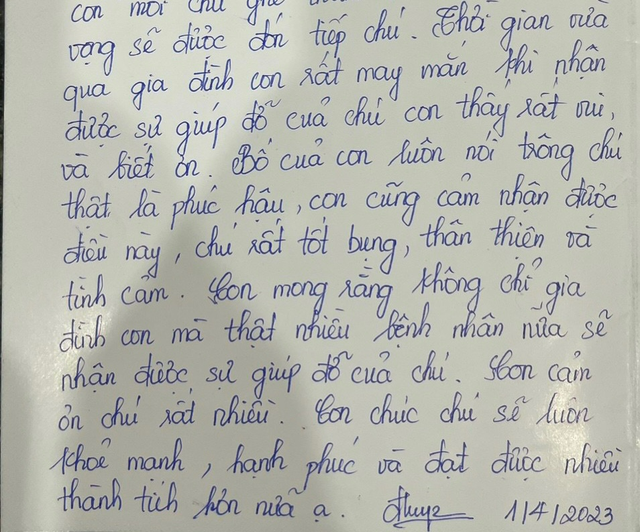 con mời chú ghé
vọng sẽ được đón tiếp chú. Thời gian vừa
qua gia đình con rất may mắn khi nhận
được sự giúp đỡ của chú con thấy rất vui,
và biết ơn. Bố của con luôn nói trông chú
thật là phúc hậu, con cũng cảm nhận được
điều này, chú rất tốt bụng, thân thiện và
tình cảm. Con mong rằng không chỉ gia
đình con mà thật nhiều bệnh nhân nữa sẽ
nhận được sự giúp đỡ của chú. Con cảm
ơn chú rất nhiều. Con chúc chú sẽ luôn
khoẻ mạnh, hạnh phúc và đạt được nhiều
thành tích hơn nữa ạ. 1/4/2023